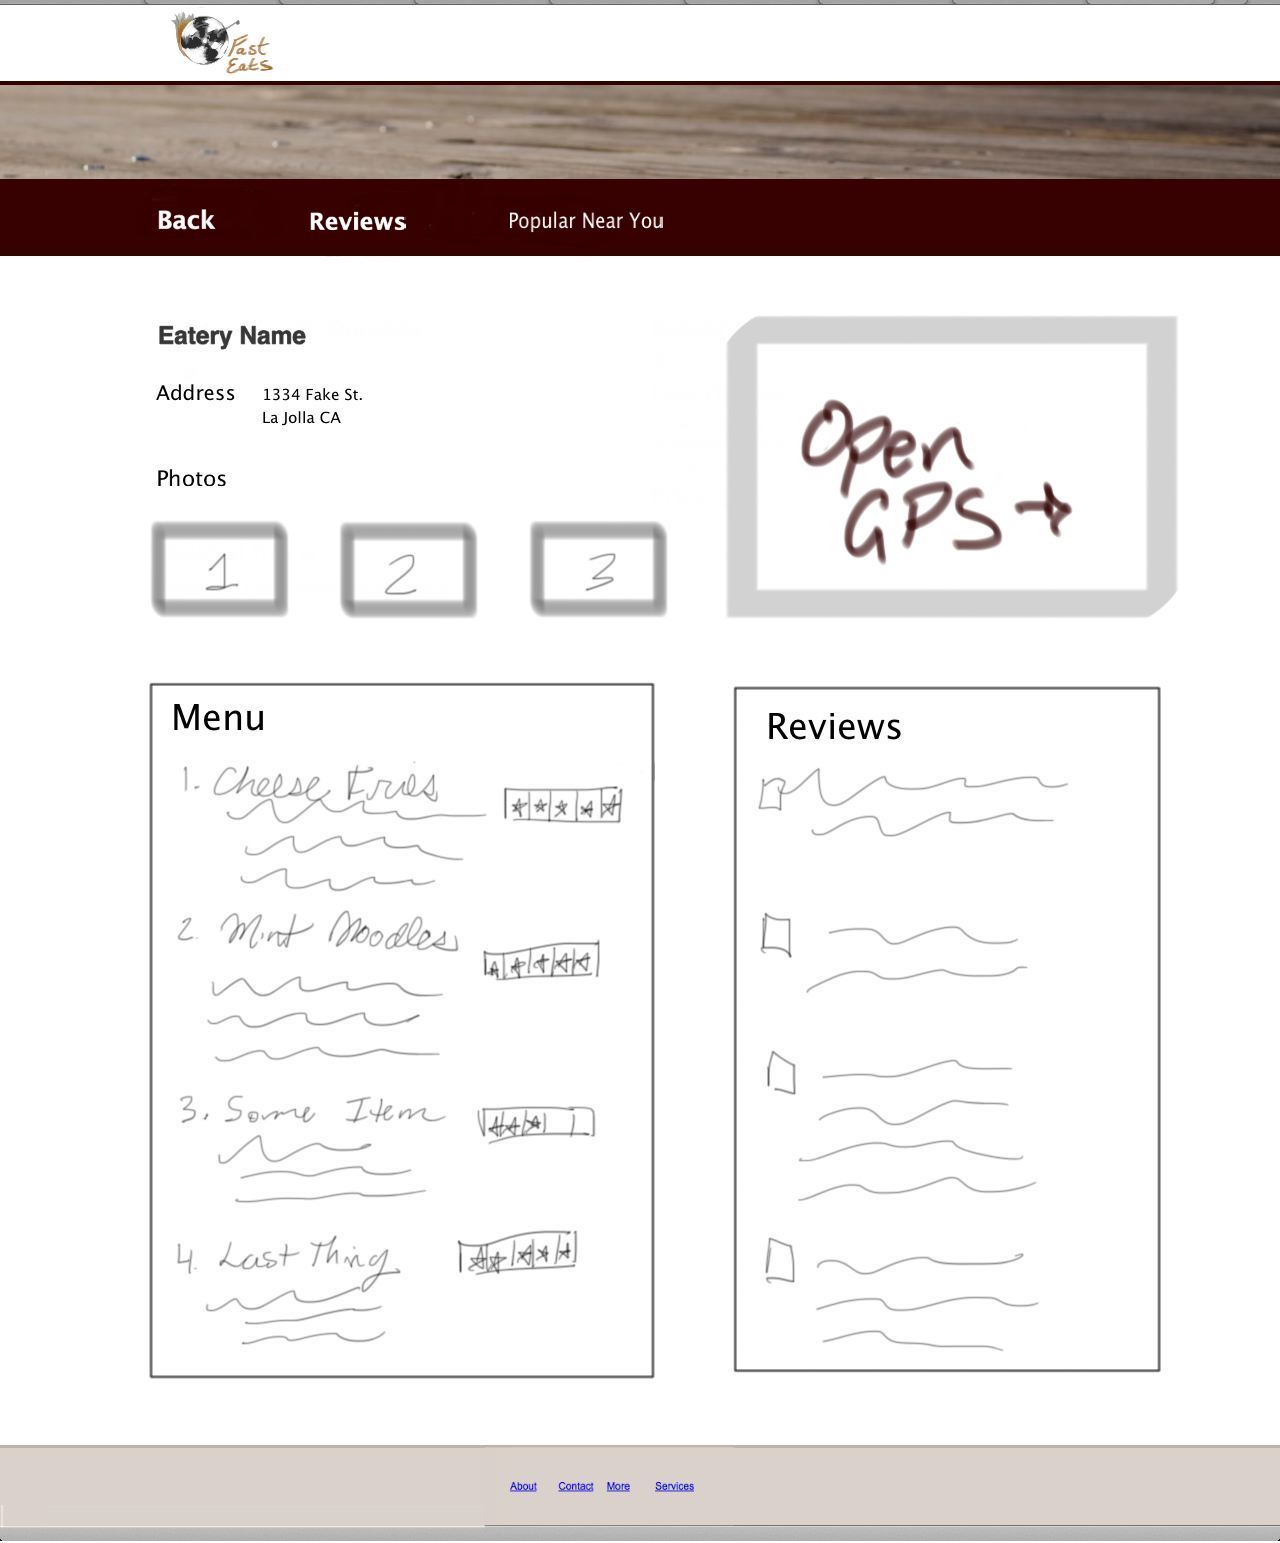 Fast
Eats
Back Reviews Popular Near You
Eatery Name
Address 1334 Fake St.
La Jolla CA
Photos
1 2 3
Open
GPS →
Menu
1. Cheese Fries
2. Mint Noodles
3. Some Item
4. Last Thing
Reviews
About Contact More Services